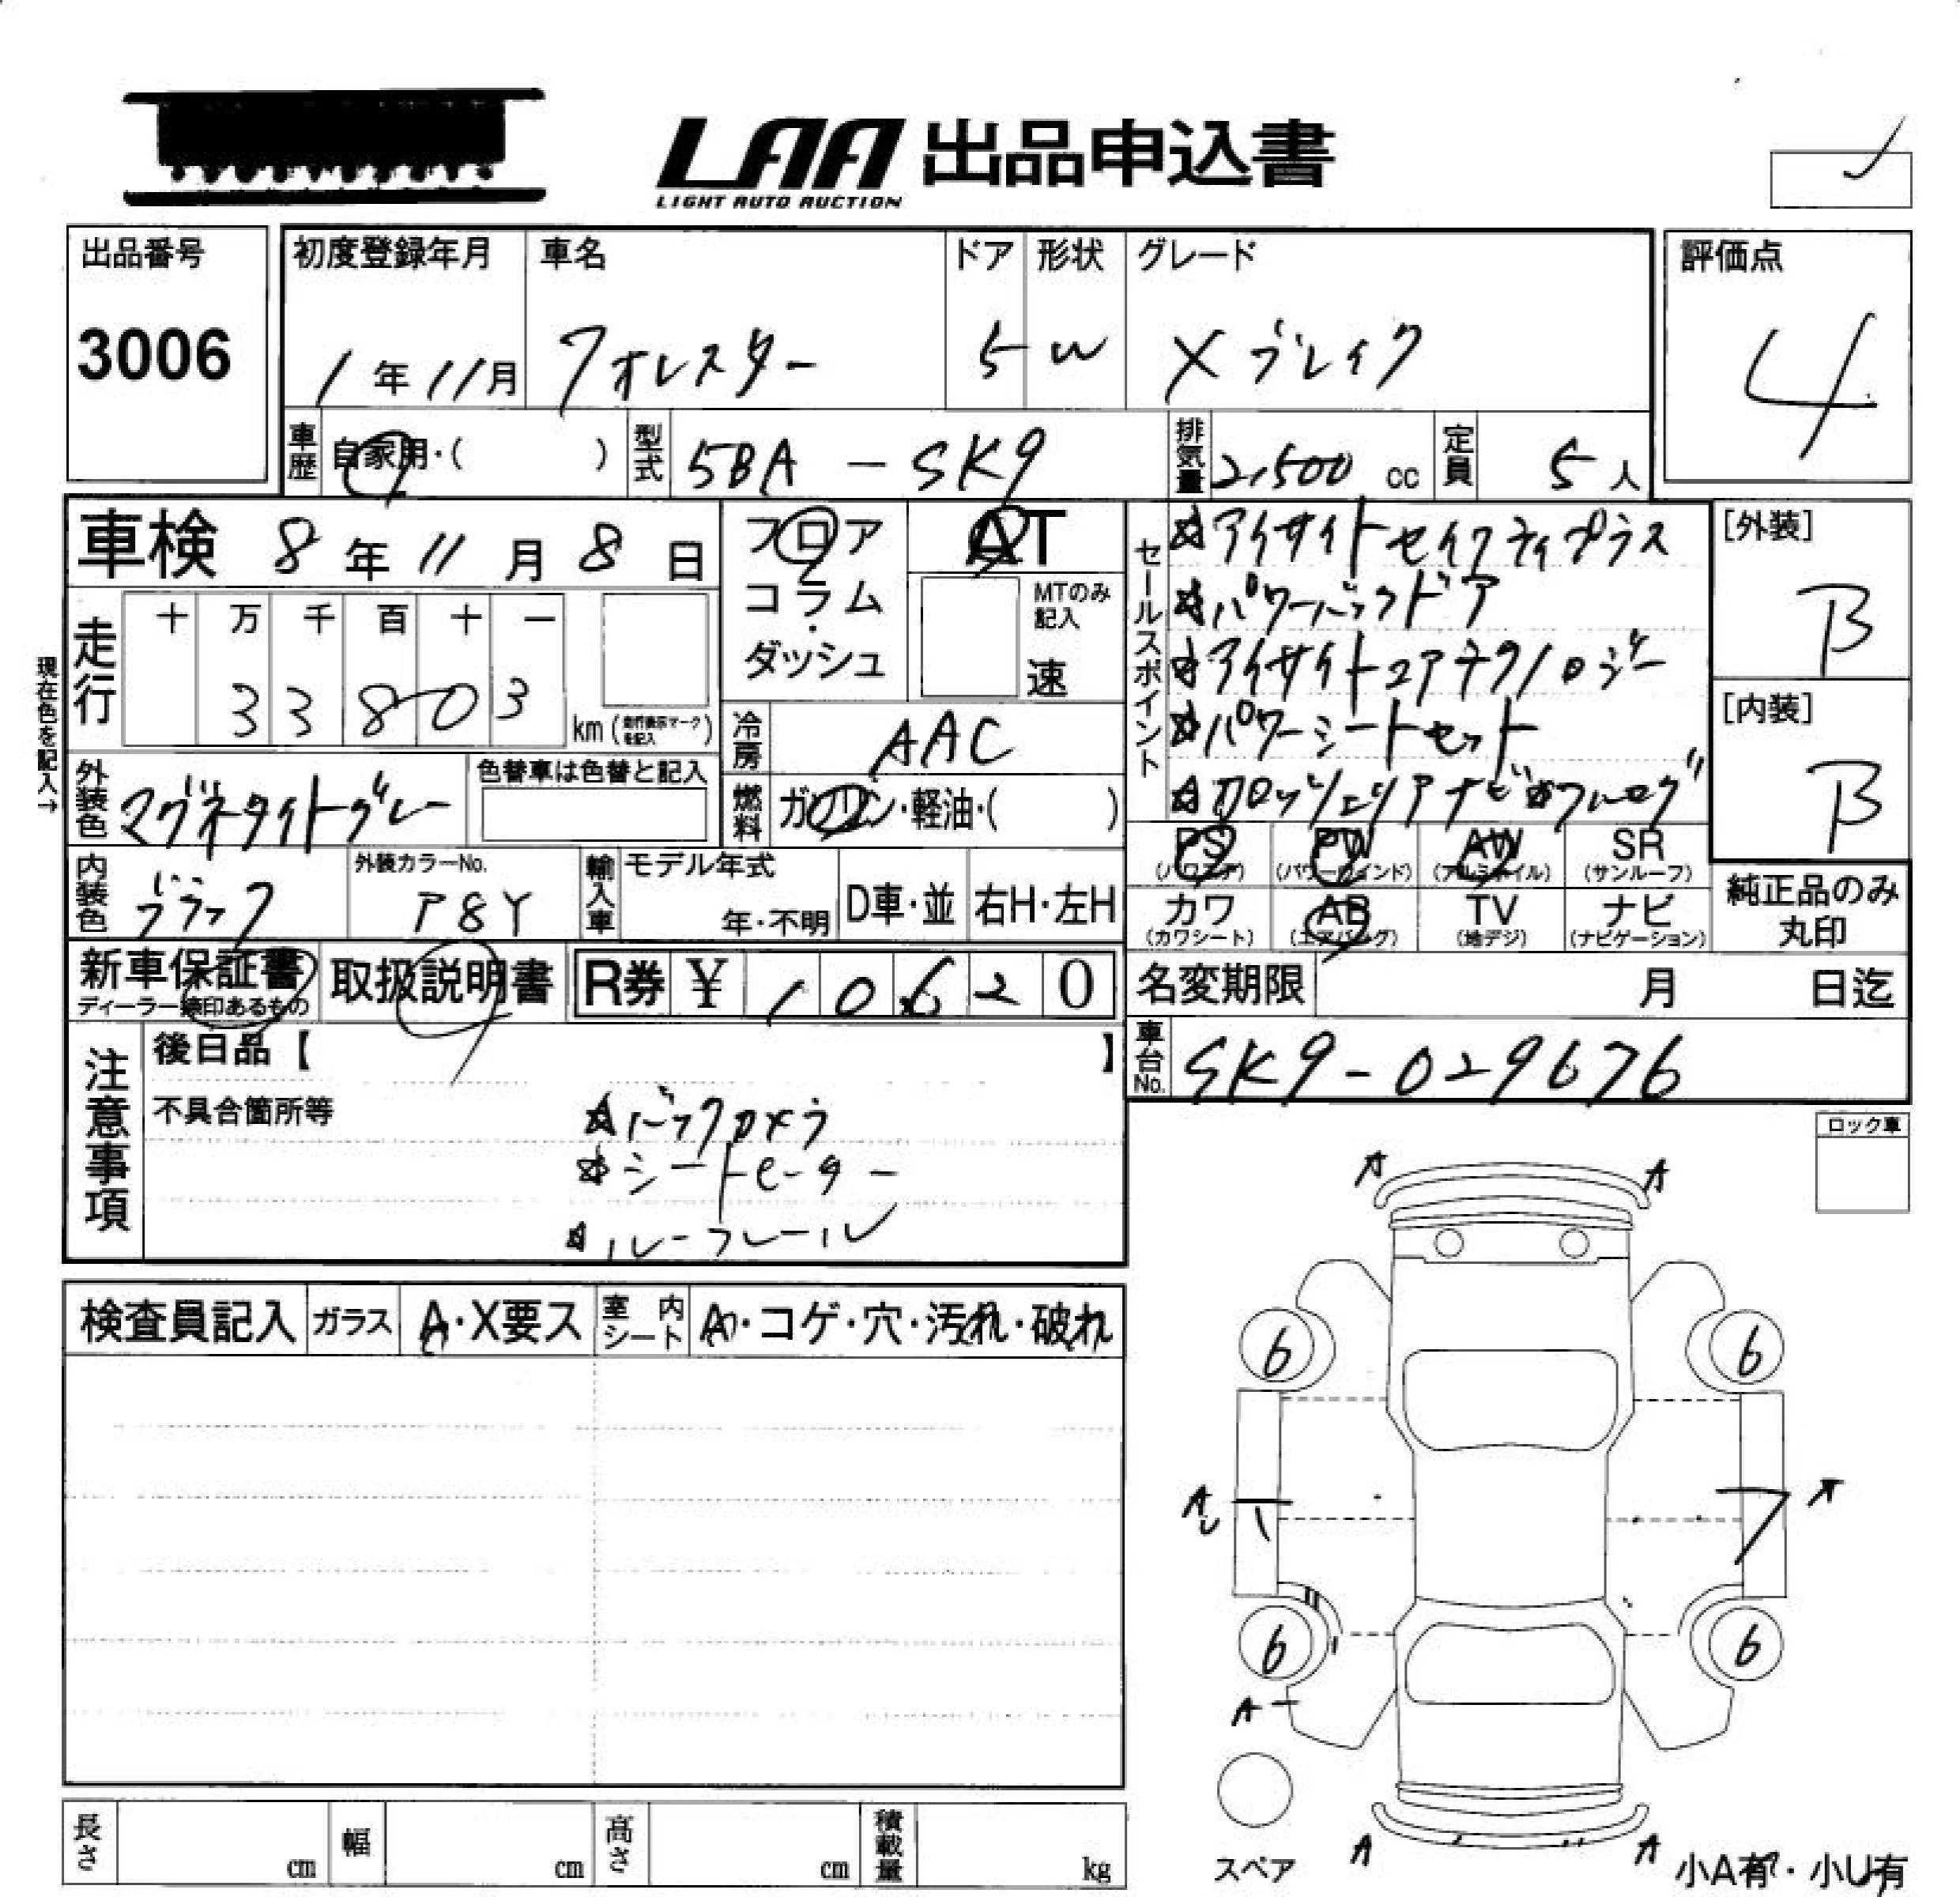 LAA 出品申込書
LIGHT AUTO AUCTION
出品番号
3006
初度登録年月
1年11月
車名
フォレスター
ドア
5
形状
W
グレード
Xブレイク
評価点
4
車歴
自家用・( )
型式
5BA-SK9
排気量
2,500 cc
定員
5人
車検 8年11月8日
フロア
コラム
・
ダッシュ
AT
MTのみ
記入
速
セールスポイント
☆アイサイトセイフティプラス
☆パワーバックドア
☆アイサイトコアテクノロジー
☆パワーシートセット
☆カロッツェリアナビ☆フルセグ
[外装]
B
[内装]
B
現在色を記入→
走行
十 万 千 百 十 一
3 3 8 0 3
km (走行表示マークを記入)
冷房
AAC
外装色
マグネタイトグレー
色替車は色替と記入
燃料
ガソリン・軽油・( )
内装色
ブラック
外装カラーNo.
P8Y
輸入車
モデル年式
年・不明
D車・並
右H・左H
PS
(パワステ)
PW
(パワーウインド)
AW
(アルミホイル)
SR
(サンルーフ)
カワ
(カワシート)
AB
(エアバッグ)
TV
(地デジ)
ナビ
(ナビゲーション)
純正品のみ
丸印
新車保証書
ディーラー捺印あるもの
取扱説明書
R券 ¥ 10620
名変期限 月 日迄
車台No.
SK9-029676
注意事項
後日品【 】
不具合箇所等
☆バックカメラ
☆シートヒーター
☆ルーフレール
ロック車
検査員記入
ガラス
A・X要ス
室内
シート
A・コゲ・穴・汚れ・破れ
A A
6 6
A
6 6
A
A A
スペア
小A有・小U有
長さ cm
幅 cm
高さ cm
積載量 kg